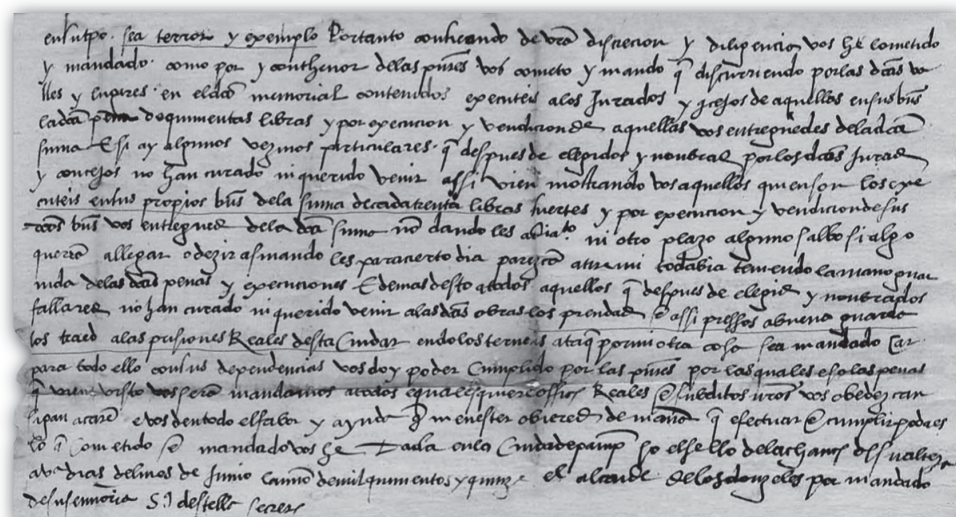 en su tpo. sea terror y exemplo Portanto confiando de vra discrecion y diligencia vos he cometido
y mandado. como por y conthenor delas pntes vos cometo y mando q discurriendo porlas dchas va
lles y lugares en el dcho memorial contenidos executeis alos Jurados y concejos de aquellos en sus bns
la dcha pena de quinientas libras y por execucion y vendicion de aquellas vos entreguedes dela dcha
suma E si ay algunos vezinos particulares. q despues de elegidos y nonbrad por los dchos Jurad
y concejos no han curado ni querido venir assi bien mostrando vos aquellos quien son los exe
cuteis en sus propios bns dela suma de cada trenta libras fuertes y por execucion y vendicion de sus
dchos bns vos entregued dela dcha suma no dando les ni otro plazo alguno salbo si algo
querran allegar o dezir asinando les para cierto dia parezcan ante mi todabia teniendo la mano
delas dchas penas y execuciones E demas desto a todos aquellos q despues de elegid y nonbrados
fallared no han curado ni querido venir alas dchas obras los prendad e assi pressos a buena guarda
los traed alas prisiones Reales desta Ciudat en do los terneis ata q por mi otra cosa sea mandado Car
para todo ello con sus dependencias vos doy poder Cumplido por las pntes por las quales e so las penas
q bien visto vos sera mandamos a todos e quales quiere officios Reales e subditos nros vos obedezcan
e vos den todo el fabor y ayuda q menester obiered de manera q efectuar e cumplir podaes
lo q Cometido e mandado vos he Dada en la Ciudad de panp so el sello dela chanc de su alteza
a dias del mes de Junio l anno de mil quinientos y quinze el alcaide delos donzeles por mandado
de su sennoria S. J destella secret